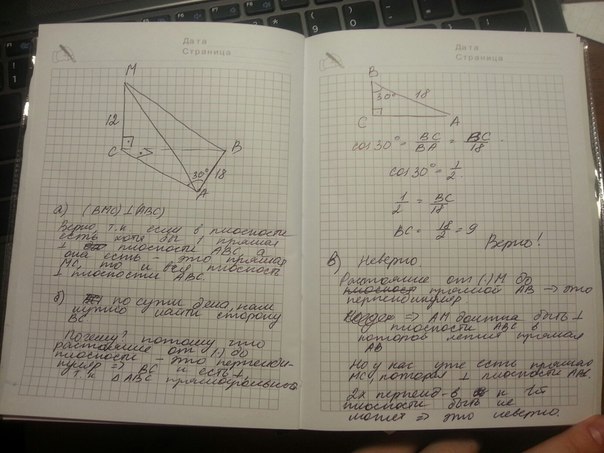 Дата
Страница
M
12
C
B
30°
18
A
а) (BMC) ⊥ (ABC)
Верно, т.к если в плоскости
есть хотя бы 1 прямая
⊥ плоскости ABC, а
она есть - это прямая
MC, то и вся плоскость
⊥ плоскости ABC.
б) по сути дела, нам
нужно найти сторону
BC
Почему? потому что
расстояние от (.) до
плоскости - это перпенди-
куляр => BC и есть ⊥
т.к △ABC прямоугольный
Дата
Страница
B
30°
18
C
A
cos 30° = BC/BA = BC/18.
cos 30° = 1/2
1/2 = BC/18
BC = 18/2 = 9
Верно!
в) Неверно.
Расстояние от (.) M до
прямой AB => это
перпендикуляр
=> AM должна быть ⊥
плоскости ABC в
которой лежит прямая
AB
Но у нас уже есть прямая
MC, которая ⊥ плоскости ABC.
2х перпенд-в к 1й
плоскости быть не
может => это неверно.